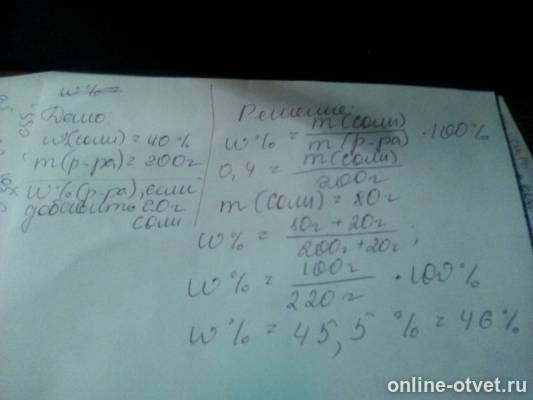 w%=
Дано:
w(соли) = 40%
m(р-ра) = 200г
w%(р-ра), если
добавить 20г
соли
Решение:
w% = m(соли) / m(р-ра) · 100%
0,4 = m(соли) / 200г
m(соли) = 80г
w% = 80г + 20г / 200г + 20г ;
w% = 100г / 220г · 100%
w% = 45,5 % = 46%
online-otvet.ru